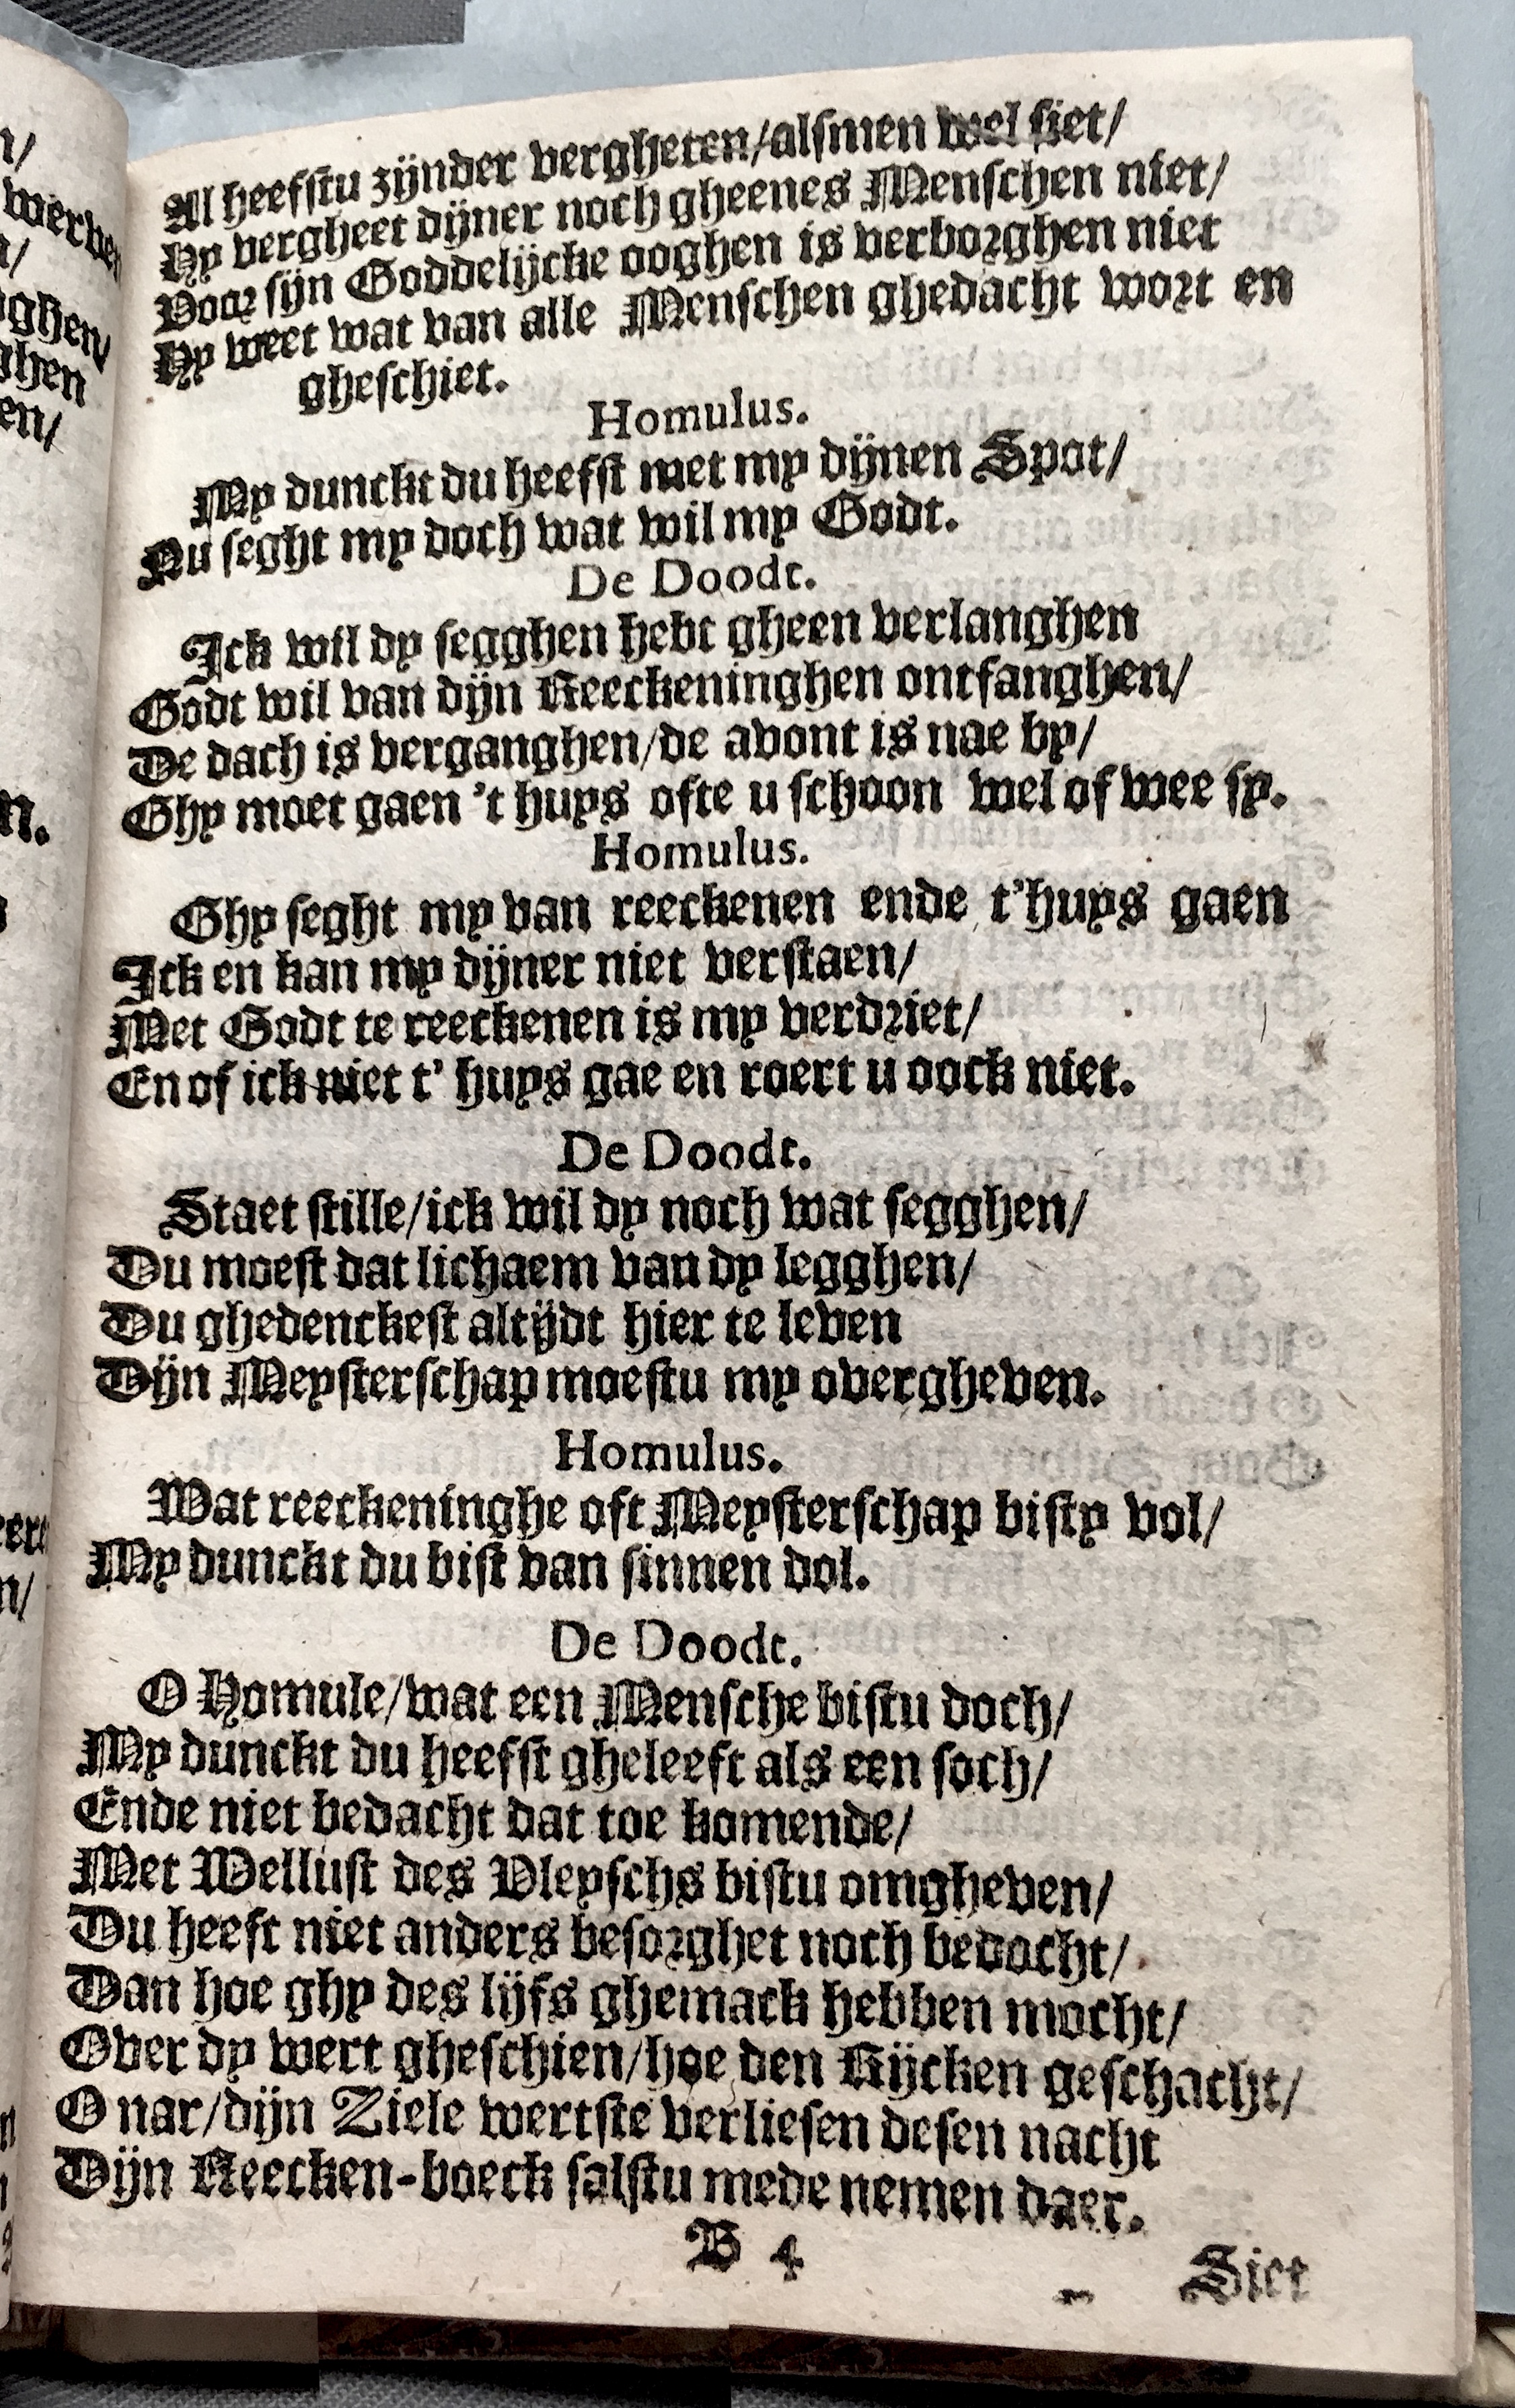 Al heefstu zijnder vergheten/alsmen wel siet/
Hy vergheet dijner noch gheenes Menschen niet/
Voor sijn Goddelijcke ooghen is verborghen niet
Hy weet wat van alle Menschen ghedacht wort en
gheschiet.
Homulus.
My dunckt du heefst met my dijnen Spot/
Nu seght my doch wat wil my Godt.
De Doodt.
Ick wil dy segghen hebt gheen verlanghen
Godt wil van dijn Reeckeninghen ontfanghen/
De dach is verganghen/de avont is nae by/
Ghy moet gaen 't huys ofte u schoon wel of wee sy.
Homulus.
Ghy seght my van reeckenen ende t'huys gaen
Ick en kan my dijner niet verstaen/
Met Godt te reeckenen is my verdriet/
En of ick niet t' huys gae en roert u oock niet.
De Doodt.
Staet stille/ick wil dy noch wat segghen/
Du moest dat lichaem van dy legghen/
Du ghedenckest altijdt hier te leven
Dijn Meysterschap moestu my overgheven.
Homulus.
Wat reeckeninghe oft Meysterschap bisty vol/
My dunckt du bist van sinnen dol.
De Doodt.
O Homule/wat een Mensche bistu doch/
My dunckt du heefst gheleeft als een soch/
Ende niet bedacht dat toe komende/
Met Wellust des Vleyschs bistu omgheven/
Du heeft niet anders besorghet noch bedocht/
Dan hoe ghy des lijfs ghemack hebben mocht/
Over dy wert gheschien/hoe den Rijcken geschacht/
O nar/dijn Ziele wertste verliesen desen nacht
Dijn Reecken-boeck salstu mede nemen daer.
B 4
Siet